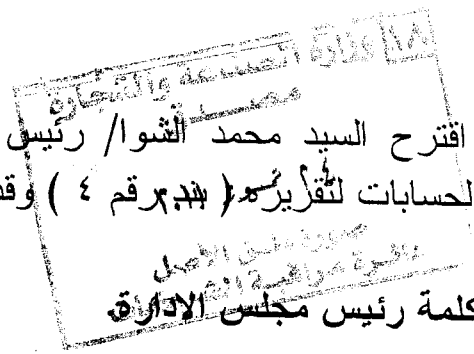 وزارة الصناعة والتجارة
مصدق
اقترح السيد محمد الشوا/ رئيس
لحسابات لتقريره ( بند رقم ٤ ) وقد
صورة طبق الأصل
دائرة مراقبة
كلمة رئيس مجلس الادارة